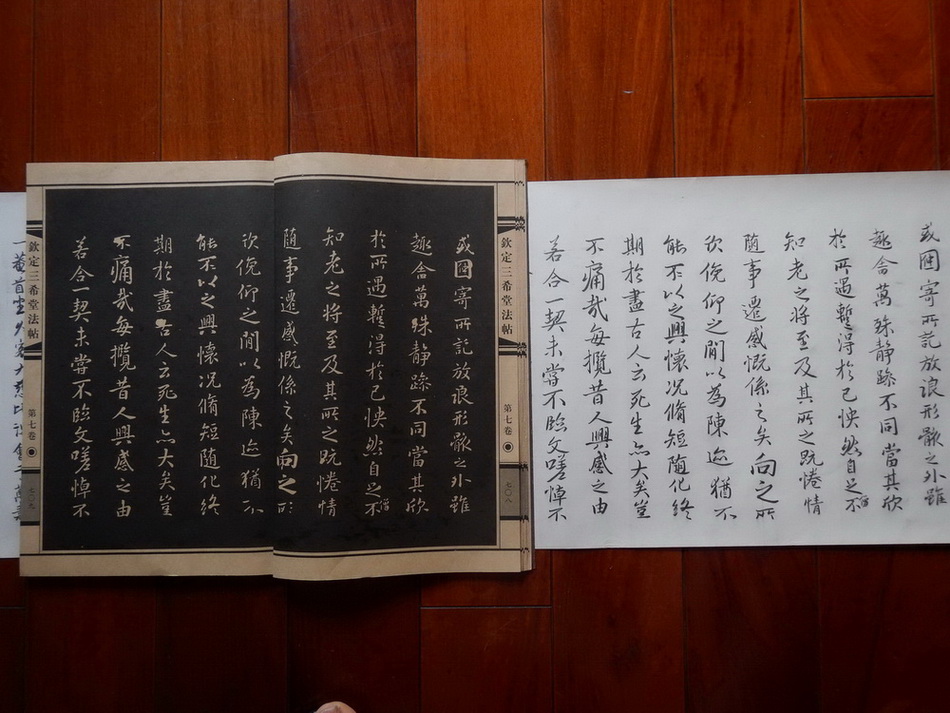 或因寄所託放浪形骸之外雖
趣舍萬殊静躁不同當其欣
於所遇蹔得於己怏然自足不
僧
知老之将至及其所之既惓情
随事遷感慨係之矣向之所
欣俛仰之閒以為陳迹猶不
能不以之興懷况脩短随化終
期於盡古人云死生亦大矣豈
不痛哉每攬昔人興感之由
若合一契未嘗不臨文嗟悼不
欽定三希堂法帖
第七卷
七〇八
或因寄所託放浪形骸之外雖
趣舍萬殊静躁不同當其欣
於所遇蹔得於己怏然自足不
僧
知老之将至及其所之既惓情
随事遷感慨係之矣向之所
欣俛仰之閒以為陳迹猶不
能不以之興懷况脩短随化終
期於盡古人云死生亦大矣豈
不痛哉每攬昔人興感之由
若合一契未嘗不臨文嗟悼不
欽定三希堂法帖
第七卷
七〇九